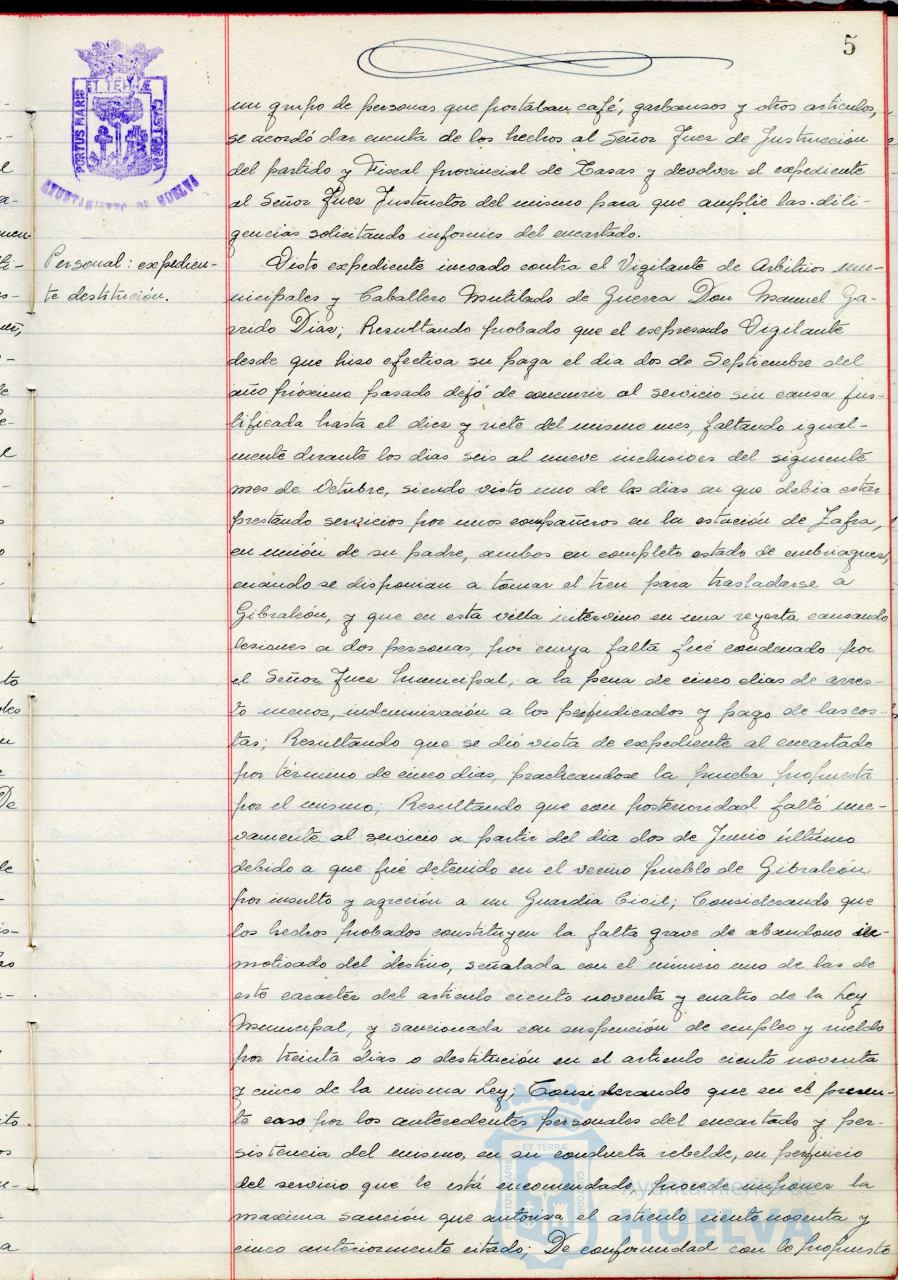 5
PORTUS MARIS ET TERRÆ CUSTODIA
AYUNTAMIENTO DE HUELVA
un grupo de personas que portaban café, garbansos y otros artículos,
se acordó dar cuenta de los hechos al Señor Juez de Instrucción
del partido y Fiscal provincial de Tasas y devolver el expediente
al Señor Juez Instructor del mismo para que amplie las dili-
gencias solicitando informes del encartado.
Personal: expedien-
te destitución.
Visto expediente incoado contra el Vigilante de Arbitrios mu-
nicipales y Caballero Mutilado de Guerra Don Manuel Ga-
rrido Dias; Resultando probado que el expresado Vigilante
desde que hiso efectiva su paga el dia dos de Septiembre del
año próximo pasado dejó de concurrir al servicio sin causa jus-
tificada hasta el dies y siete del mismo mes, faltando igual-
mente durante los dias seis al nueve inclusives del siguiente
mes de Octubre, siendo visto uno de los dias en que debia estar
prestando servicios por unos compañeros en la estación de Zafra,
en unión de su padre, ambos en completo estado de embriagues,
cuando se disponian a tomar el tren para trasladarse a
Gibraleón, y que en esta villa intervino en una reyerta causando
lesiones a dos personas, por cuya falta fué condenado por
el Señor Juez Municipal, a la pena de cinco dias de arres-
to menor, indemnisación a los perjudicados y pago de las cos-
tas; Resultando que se dió vista de expediente al encartado
por término de cinco dias, practicandose la prueba propuesta
por el mismo; Resultando que con posterioridad faltó nue-
vamente al servicio a partir del dia dos de Junio último
debido a que fué detenido en el vecino pueblo de Gibraleón
por insulto y agreción a un Guardia Civil; Considerando que
los hechos probados constituyen la falta grave de abandono in-
motivado del destino, señalada con el número uno de las de
este caracter del articulo ciento noventa y cuatro de la Ley
Municipal, y sancionada con suspención de empleo y sueldo
por treinta dias o destitución en el articulo ciento noventa
y cinco de la misma Ley; Considerando que en el presen-
te caso por los antecedentes personales del encartado y per-
sistencia del mismo, en su conducta rebelde, en perjuicio
del servicio que le está encomendado, procede imponer la
maxima sanción que autorisa el articulo ciento noventa y
cinco anteriormente citado; De conformidad con lo propuesto
Ayuntamiento de
HUELVA